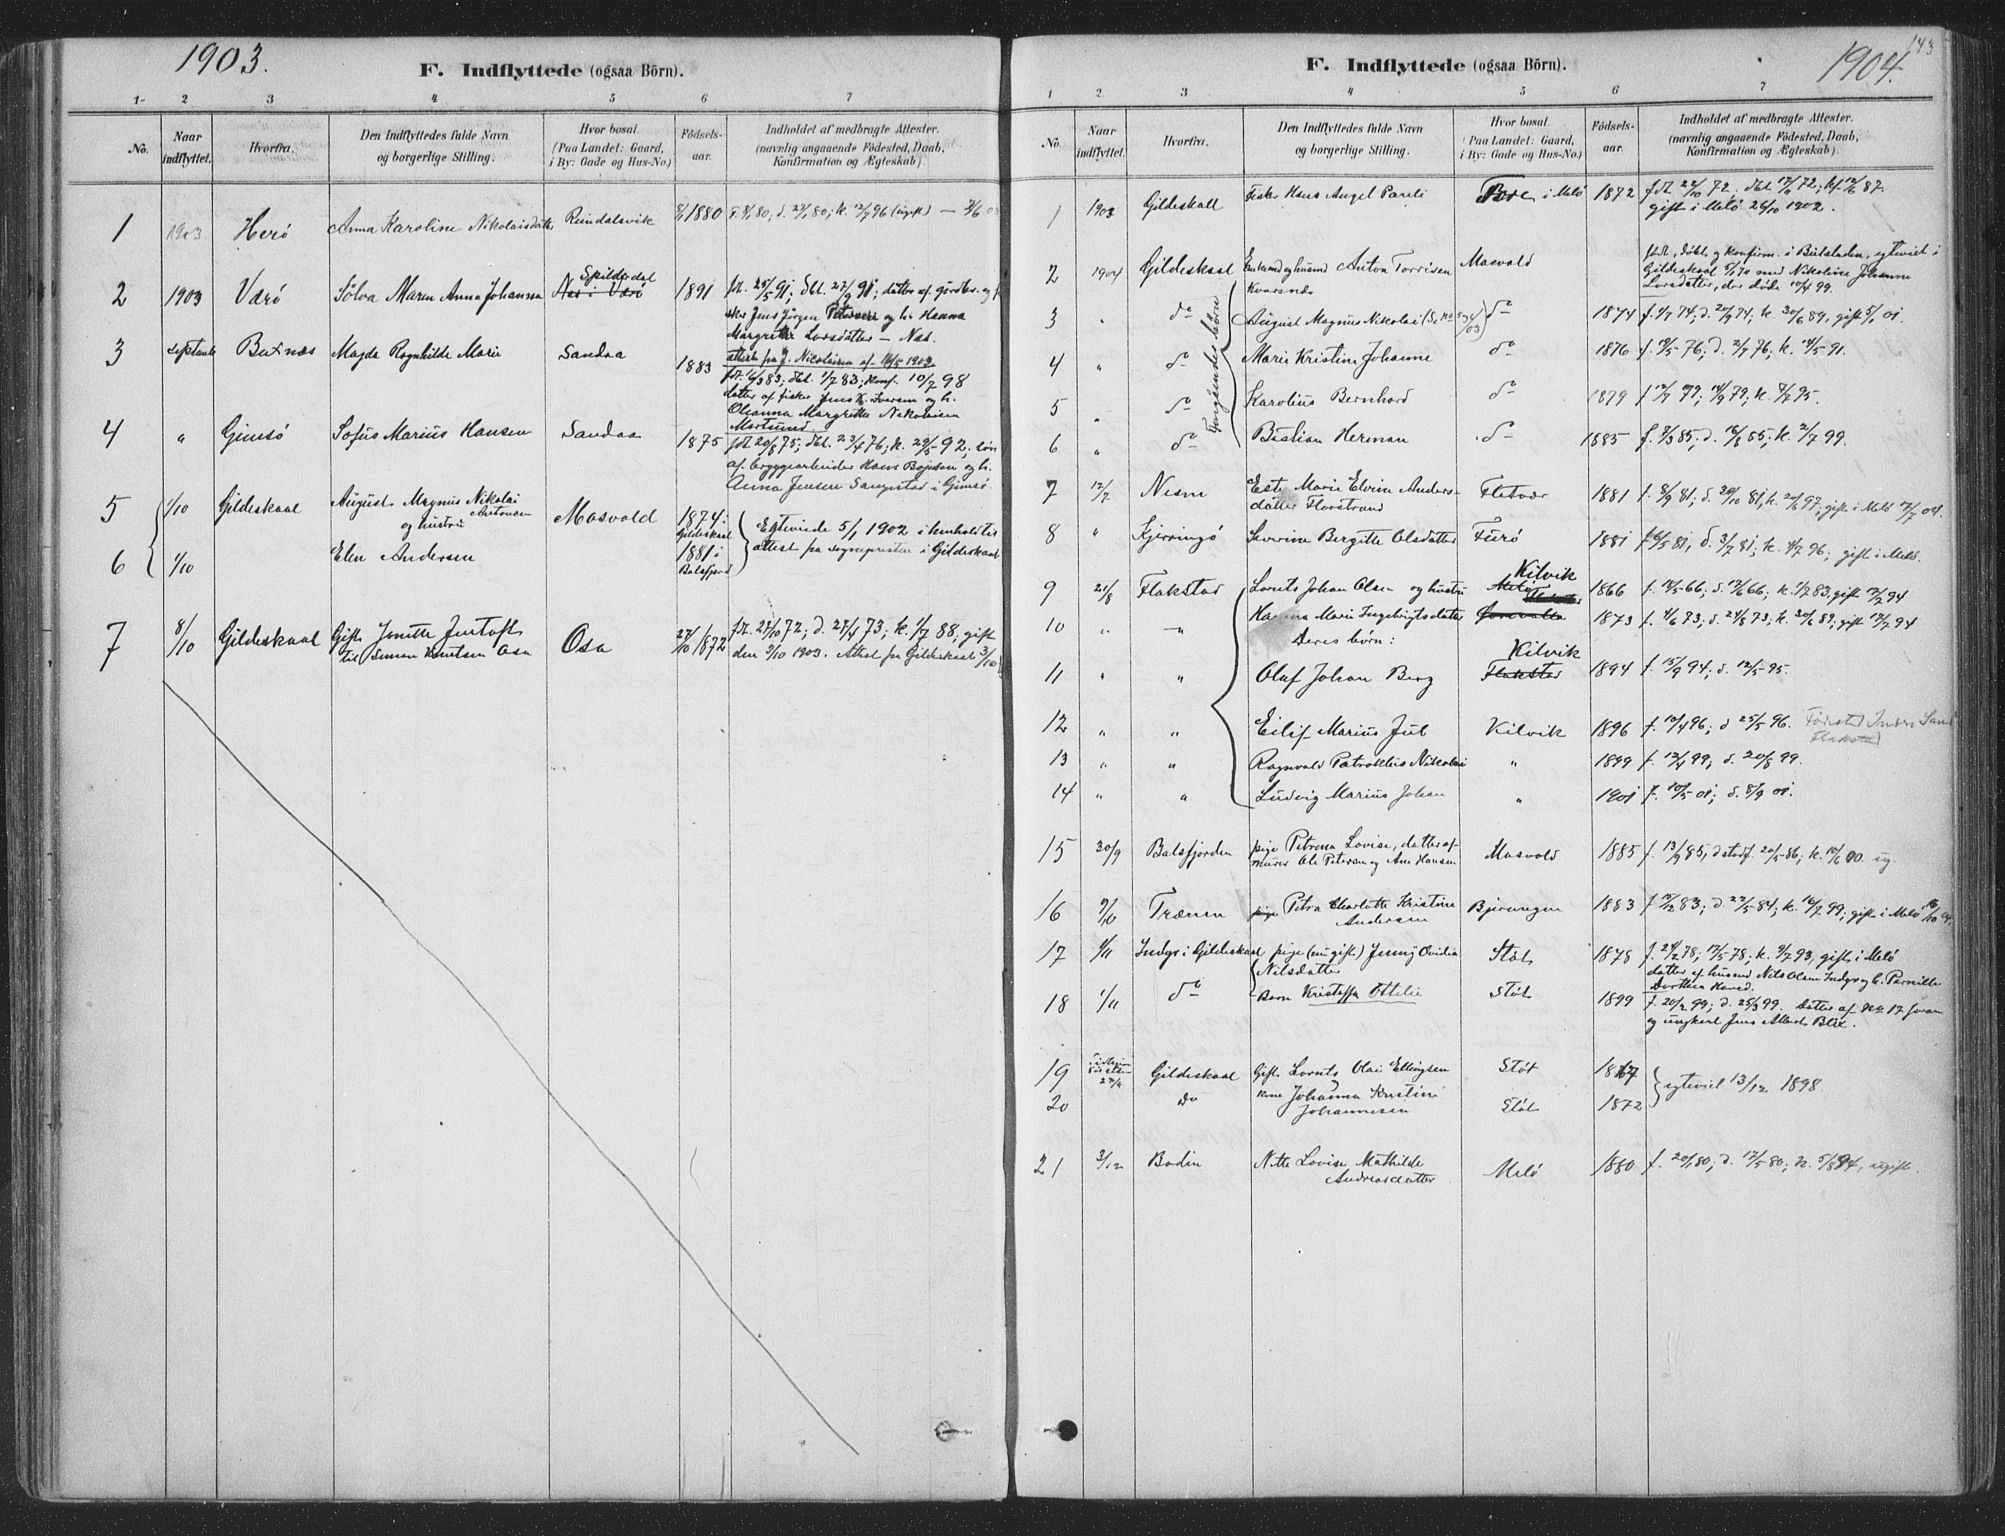 1903.
F. Indflyttede (ogsaa Börn).
1- 2 3 4 5 6 7
No. Naar indflyttet. Hvorfra. Den Indflyttedes fulde Navn og borgerlige Stilling. Hvor bosat (Paa Landet: Gaard, i By: Gade og Hus-No.) Födsels-aar. Indholdet af medbragte Attester. (navnlig angaaende Födested, Daab, Konfirmation og Ægteskab)
1 1903 Herö Anna Karoline Nikolaisdatter Reindalsvik 1880
2 1903 Værö Sölva Maren Anna Johanna Spilderdal Nes i Værö 1891 fdt. 25/5 91; dbt. 27/9 91; datter af gårdbr. og
Jens Jörgen Petersen og h. Hanna
Margrethe Larsdatter – Nes.
3 Septemb Buxnæs Magda Ragnhilde Marie Sandaa 1883 attest fra J. Nicolaisen af 16/5 1903
fdt. 16/3 83; dbt. 1/7 83; konf. 10/7 98
datter af fisker Jens K. Iversen og h.
Oleanna Margrethe Nikolaisen
Mortsund.
4 " Gimsö Sofus Marius Hansen Sandaa 1875 fdt 20/8 75; dbt. 23/4 76; k. 29/5 92; sön
af bryggearbeider Hans Bojesen og h.
Anna Jensen Sangestad i Gimsö.
5 1/10 Gildeskaal August Magnus Nikolai Antonsen og hustru Masvold 1874 i Gildeskaal Egteviede 5/1 1902 i henhold til
6 1/10 Elen Andersen 1881 i Balsfjord attest fra sognepresten i Gildeskaal
7 8/10 Gildeskaal Gift Jenette Justoft Osa 27/10 1872 fdt. 27/10 72; d. 27/4 73; k. 1/7 88; gift
til Simon Knutsen Osa den 3/10 1903. Attest fra Gildeskaal 3/10
143
1904.
F. Indflyttede (ogsaa Börn).
1 2 3 4 5 6 7
No. Naar indflyttet. Hvorfra. Den Indflyttedes fulde Navn og borgerlige Stilling. Hvor bosat. (Paa Landet: Gaard, i By: Gade og Hus-No.) Födsels-aar. Indholdet af medbragte Attester. (navnlig angaaende Födested, Daab, Konfirmation og Ægteskab)
1 1903 Gildeskall Fisker Hans Angel Pareli i Melö 1872 fdt. 22/10 72. dbt. 17/11 72; kf. 12/6 87.
gift i Melö 26/10 1902.
2 1904 Gildeskaal Enkemand og husmd Anton Torrisen Kvarsnes Masvold fdt., döbt og konfirm. i egteviet i
Gildeskaal 70 med Nikoline Johanna
Larsdatter, der döde 10/4 99.
Foregaaendes börn
3 " do August Magnus Nikolai do 1874 f. 1/7 74; d. 20/9 74, k. 30/6 89, gift 5/1 01.
4 " do Marie Kristine Johanne do 1876 f. 19/5 76; d. 2/7 76; k. 14/5 91.
5 " do Karolius Bernhard do 1879 79; 14/9 79; k. 95.
6 " do Bastian Herman do 1885 f. 9/3 85. d. 16/8 85; k. 2/7 99.
7 12/7 Nesne Marie Elvine Andersdatter Florstrand Fleivær 1881 f. 8/9 81, d. 30/10 81, k. 20/6 97, gift i Melö 17/7 04.
8 " Kjerringö Severine Bergitte Olsdatter Furö 1881 d. 3/7 81; k. 96; gift i Melö.
9 21/8 Flakstad Lorents Johan Olsen og hustru Kilvik 1866 66; k. 1/7 83, gift 94
10 " " Marie Ingebrigtsdatter 1873 f. 4/6 73; d. 24/8 73; k. 30/6 89; gift 94
Deres börn:
11 " " Olaf Johan Berg Kilvik Flakstad 1894 f. 15/9 94; d. 12/5 95.
12 " " Eilif Marius Jul Kilvik 1896 f. 10/4 96; d 25/5 96.
Flakstad
13 " " Ragnvald Patroklus Nikolai " 1899 99; d. 20/8 99.
14 " " Ludvig Marius Johan " 1901 f. 10/5 01; d. 8/9 01.
15 30/9 Balsfjorden pige Petrona Lovise, datter af Masvold 1885 f. 13/9 85, d 20/5 86; k. 10/6 00. ug
murer Ole Petersen og Ane Hansen
16 9/10 Trænen pige Petra Charlotte Kristine Andersen Bjerangen 1883 f. 15/12 83; d. 22/5 84; k. 16/7 99; gift i Melö
17 1/11 Indyr i Gildeskaal pige (nu gift) Jenny Ovidia Nilsdatter Stöt 1878 f. 24/2 78; 12/5 78; k. 9/7 93, gift i Melö
datter af husmd Nils Olsen Indyr og h. Pernille
Dorthea
18 1/11 do Barn Kristoffa Ottilie Stöt 1899 f. 20/2 99; d. 25/3 99. Datter af No 17 foran
og ungkarl Jens Albert Blix.
19 Gildeskaal Gift Lorents Olai Ellingsen Stöt 1867 egteviet 13/12 1898.
20 do Kone Johanna Kristine Johannesen Stöt 1872
21 3/12 Bodin Nette Lovise Mathilde Andreasdatter Melö 1880 f. 20/1 80; d. 17/5 80; k. 5/8 94, ugift.